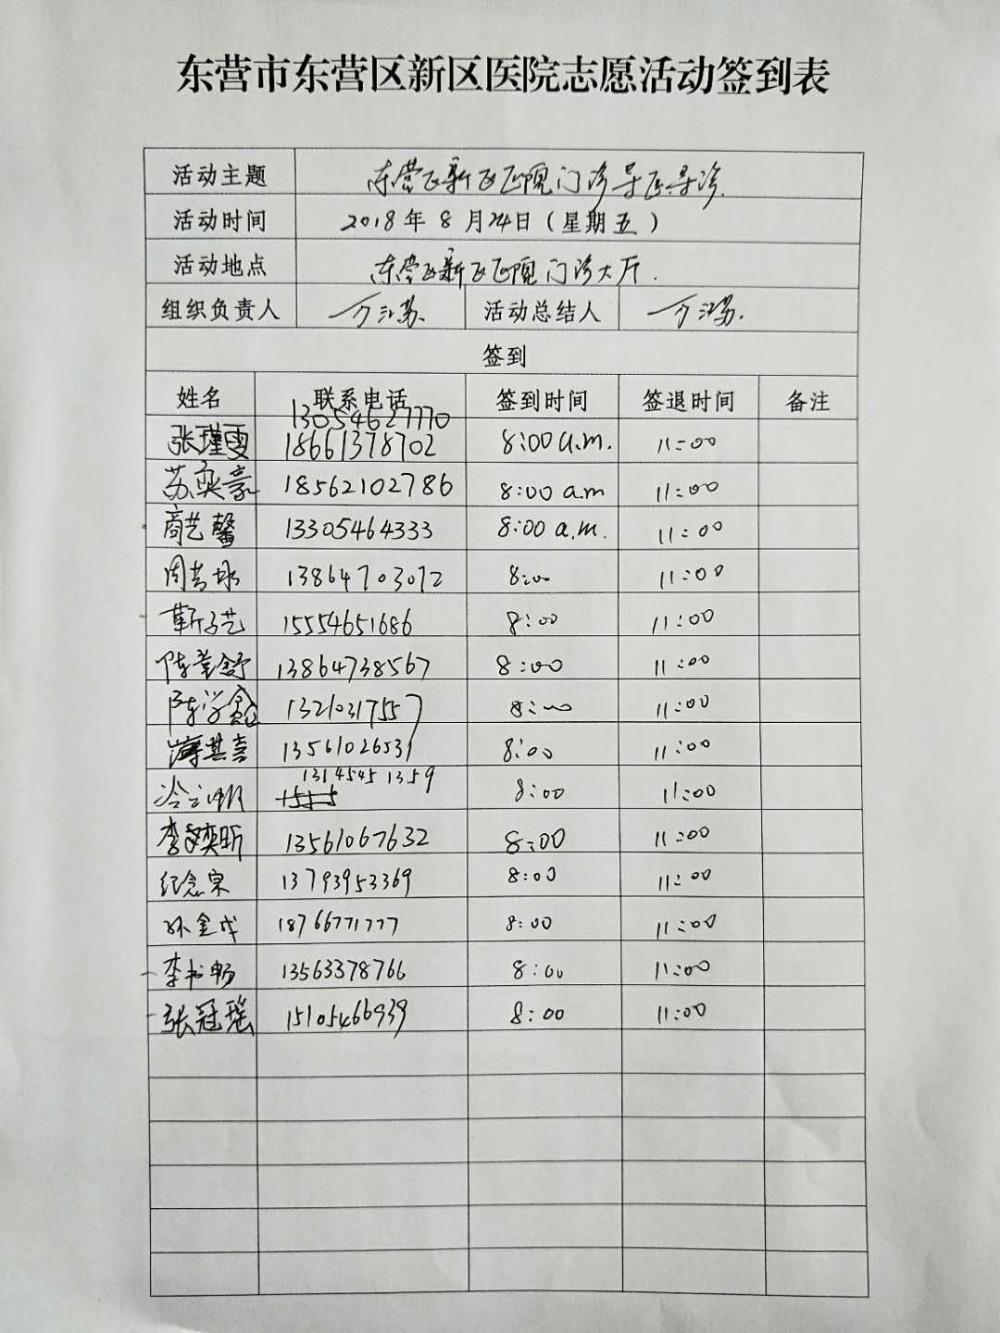 东营市东营区新区医院志愿活动签到表
活动主题 东营区新区医院门诊导医导诊.
活动时间 2018年 8 月24日（星期五）
活动地点 东营区新区医院门诊大厅.
组织负责人 活动总结人
签到
姓名 联系电话 签到时间 签退时间 备注
13054627770
张瑾雯 18661378702 8:00 a.m. 11:00
苏奕豪 18562102786 8:00 a.m 11:00
商艺馨 13305464333 8:00 a.m. 11:00
13864703072 8:00 11:00
靳子艺 15554651686 8:00 11:00
陈莹舒 13864738567 8:00 11:00
陈学鑫 13210317557 8:00 11:00
13561026531 8:00 11:00
13145451359
8:00 11:00
李奕昕 13561067632 8:00 11:00
纪念泉 13793953369 8:00 11:00
孙金戈 18766771777 8:00 11:00
李书畅 13563378766 8:00 11:00
张冠瑶 15105466939 8:00 11:00